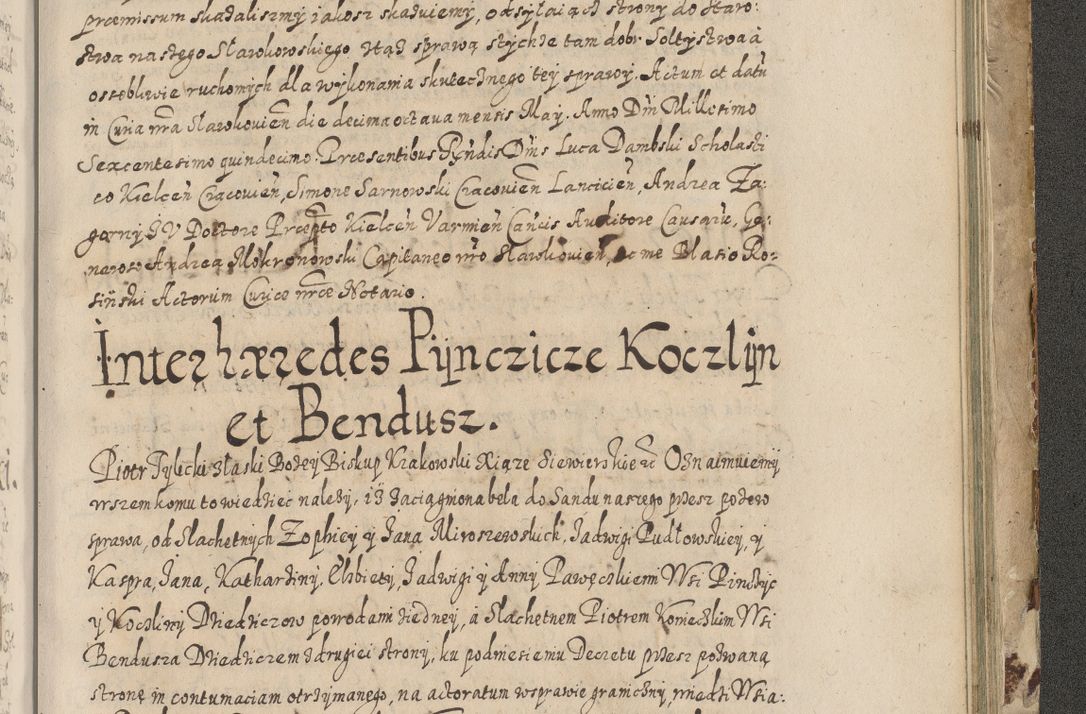 præmissum skadalismy jakosz skaduiemy, odsyłaiącz strony do staro:
stwa naszego Sławkowskiego, stąd sprawą stychże tam dobr Soltystwa à
osseblivie ruchomych dla wykonania skutecznego tey sprawy. Actum et datū
in Curia nr̄a Slawkovien̄ die decima octava mensis May. Anno Dn̄i Millesimo
Sexcentesimo quindecimo. Præsentibus Dn̄is Luca Dambski Scholasti
co Kielcen̄ Cracovien̄, Simone Sarnowski Cracovien̄ Lancicien̄, Andrea Za:
gorny JV Doctore Præpto Kielcen̄ Varmien̄ Can̄cis Auditore Causarū, Ge:
neroso Andrea Mokronowski Capitaneo nr̄o Slawkovien̄, ac me Blasio Ro:
siński Actorum Curiæ nr̄æ Notario.
Inter hæredes Pijnczicze Koczlijn
et Bendusz.
Piotr Tylicki złaski Bożey Biskup Krakowski Xiąże Siewierskie etc̄ Oznaimuiemy
wszem komu to wiedzieć należy, iż zaciągniona beła do Sandu naszego przesz pozew
sprawa, od Slachetnych Zophiey y Jana Miroszewskich, Jadwigi Pudłowskiey, y
Kaspra, Jana, Katharziny, Elżbiety, Jadwigi y Anny Pawęczkiem Wsi Pinczyc
y Koczliny Dziedziczow powodami ziedney, a Slachetnem Piotrem Konieczkim Wsi
Bendusza Dziedziczem zdrugiei strony, ku podniesiemu Decretu przesz pozwaną
stronę in contumaciam otrzymanego, na actoratum wsprawie graniczny, miedzi Wsia: